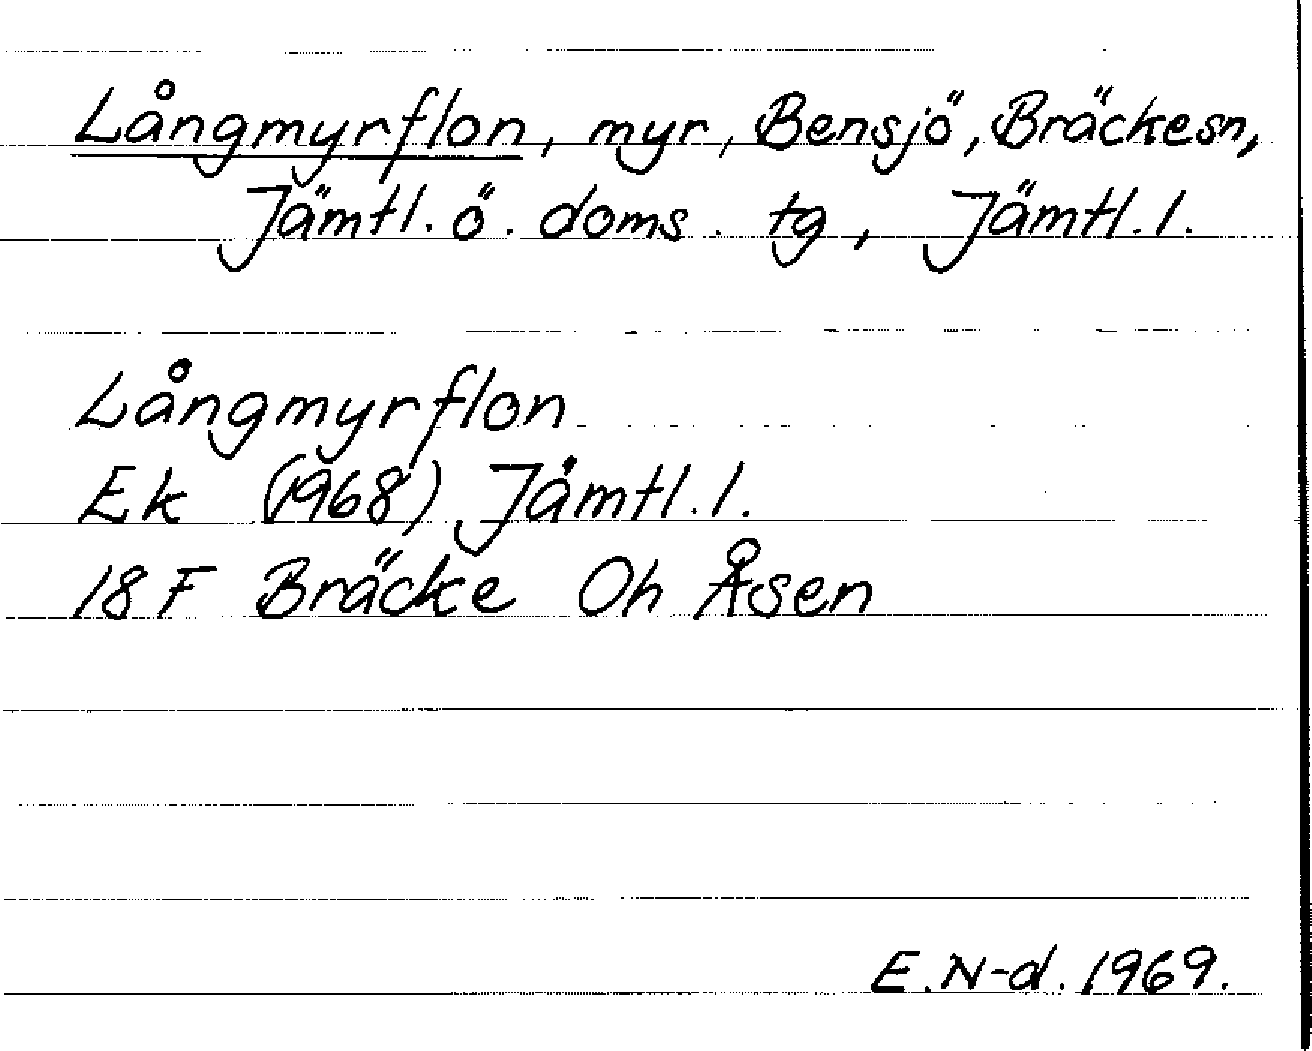 Långmyrflon, myr, Bensjö, Bräckesn,
Jämtl. ö. doms. tg, Jämtl. l.
Långmyrflon
Ek (1968) Jämtl. l.
18 F Bräcke Oh Åsen
E. N-d. 1969.